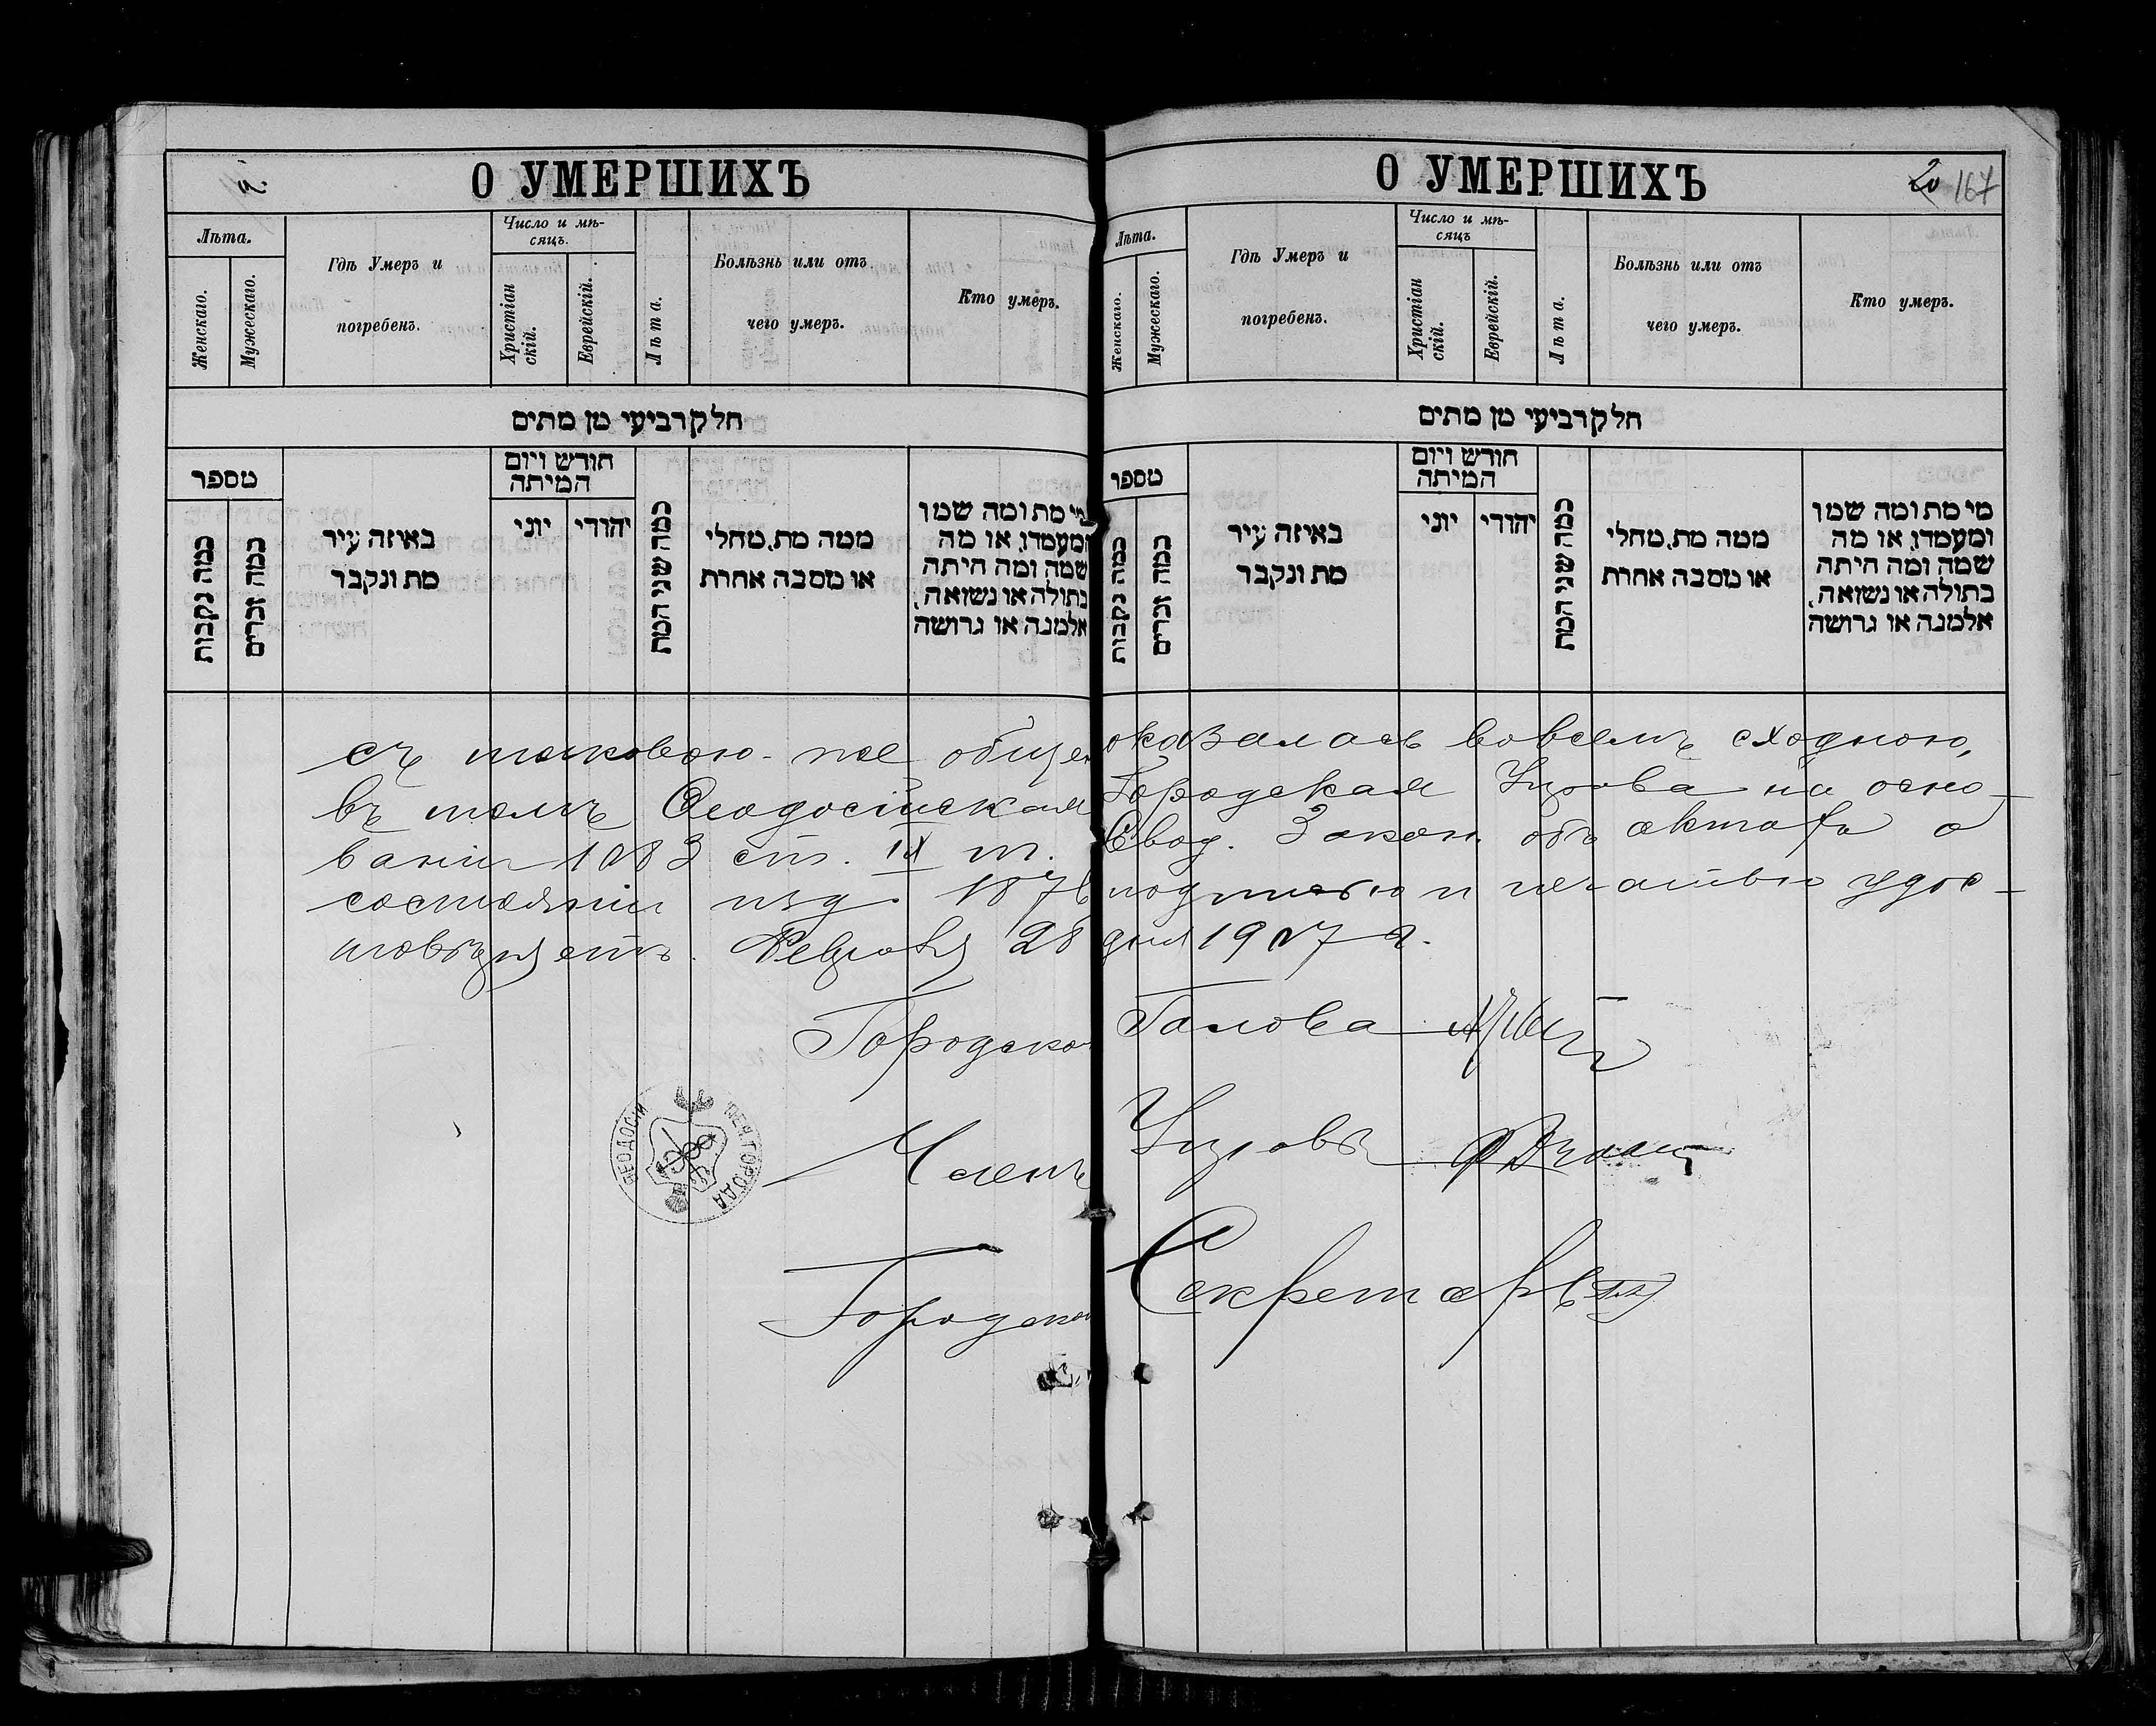 О УМЕРШИХЪ
Лѣта.
Женскаго.
Мужескаго.
Гдѣ Умеръ и
погребенъ.
Число и мѣ-
сяцъ.
Христіан
скій.
Еврейскій.
Лѣта.
Болѣзнь или отъ
чего умеръ.
Кто умеръ.
חלק רביעי מן מתים
מספר
כמה נקבות
כמה זכרים
באיזה עיר
מת ונקבר
חודש ויום
המיתה
יוני
יהודי
כמה שני המת
ממה מת, מחלי
או מסבה אחרת
מי מת ומה שמו
ומעמדו, או מה
שמה ומה היתה
בתולה או נשואה,
אלמנה או גרושה
О УМЕРШИХЪ
20 167
Лѣта.
Женскаго.
Мужескаго.
Гдѣ Умеръ и
погребенъ.
Число и мѣ-
сяцъ
Христіан
скій.
Еврейскій.
Лѣта.
Болѣзнь или отъ
чего умеръ.
Кто умеръ.
חלק רביעי מן מתים
מספר
כמה נקבות
כמה זכרים
באיזה עיר
מת ונקבר
חודש ויום
המיתה
יוני
יהודי
כמה שני המת
ממה מת, מחלי
או מסבה אחרת
מי מת ומה שמו
ומעמדו, או מה
שמה ומה היתה
בתולה או נשואה,
אלמנה או גרושה
съ таковою-же общею оказалась вовсемъ сходною,
въ томъ Ѳеодосійская Городская Управа на осно-
ваніи 1083 ст. IX т. Свод. Закон. объ актахъ о
состояніи изд. 1876 подписью и печатью удос-
товѣряетъ. Февраля 28 дня 1907 г.
Городской Голова
Членъ Управы
Городской Секретарь
ПЕЧ. ГОРОДА ѲЕОДОСІИ